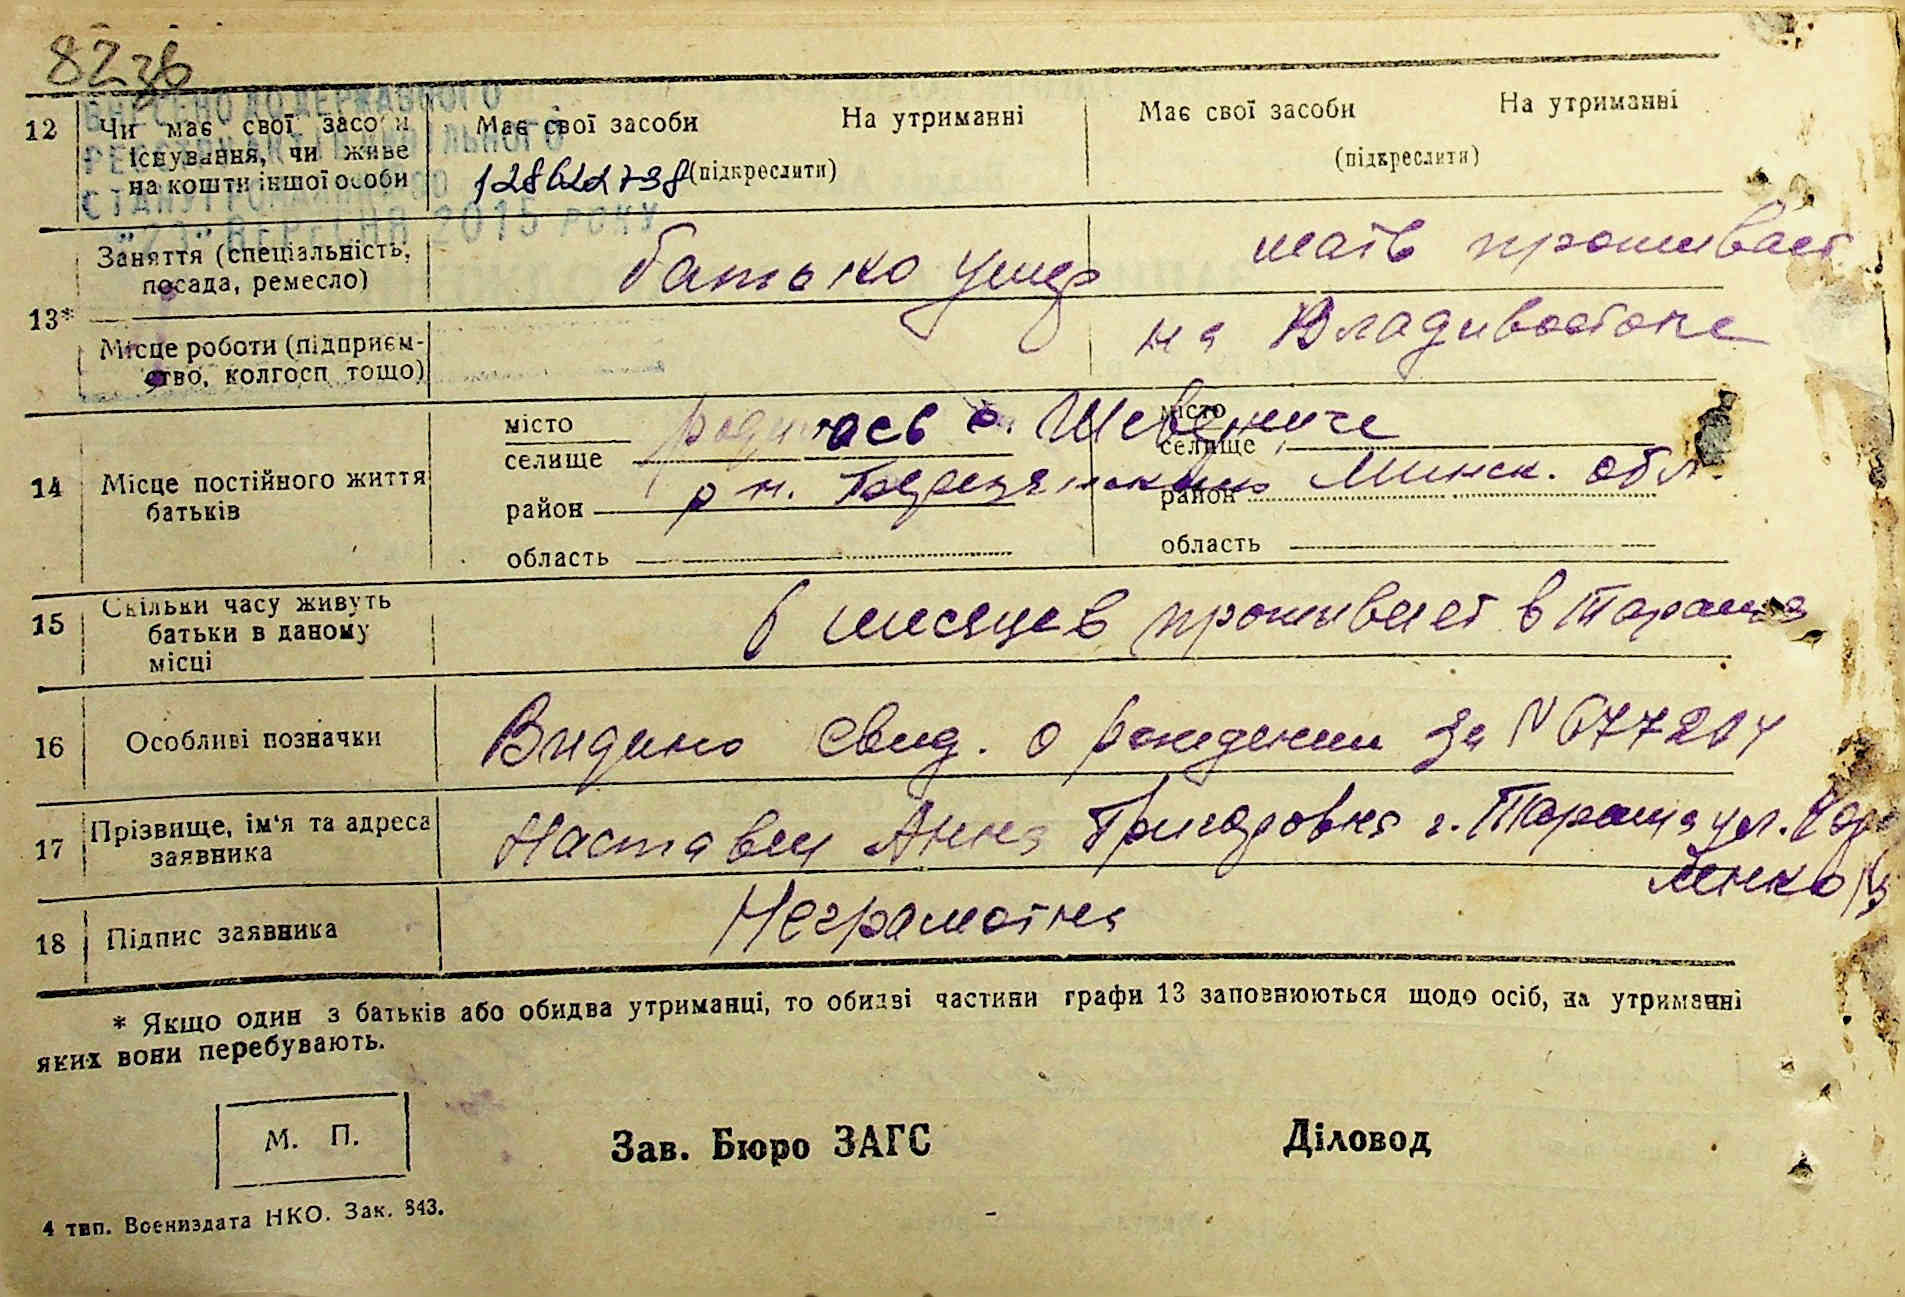 82 зв
ВНЕСЕНО ДО ДЕРЖАВНОГО
РЕЄСТРУ АКТІВ ЦИВІЛЬНОГО
СТАНУ ГРОМАДЯН ЗА
"23" ВЕРЕСНЯ 2015 РОКУ
12 Чи має свої засоби існування, чи живе на кошти іншої особи
Має свої засоби На утриманні
128622798 (підкреслити)
Має свої засоби На утриманні
(підкреслити)
13*
Заняття (спеціальність, посада, ремесло)
батько умер
мать проживает
Місце роботи (підприєм-
ство, колгосп тощо)
на Владивостоке
14 Місце постійного життя
батьків
місто
селище
район
область
місто
селище
район
область
родилась с.
р н. Минск. обл
15 Скільки часу живуть
батьки в даному
місці
6 месяцев проживает в Тараща
16 Особливі позначки
Видано свид. о рождении за N 677204
17 Прізвище, ім'я та адреса
заявника
Наставец Анна Григоровна г. Тараща ул.
18 Підпис заявника
Неграмотна
* Якщо один з батьків або обидва утриманці, то обидві частини графи 13 заповнюються щодо осіб, на утриманні
яких вони перебувають.
М. П.
Зав. Бюро ЗАГС
Діловод
4 тип. Воениздата НКО. Зак. 843.